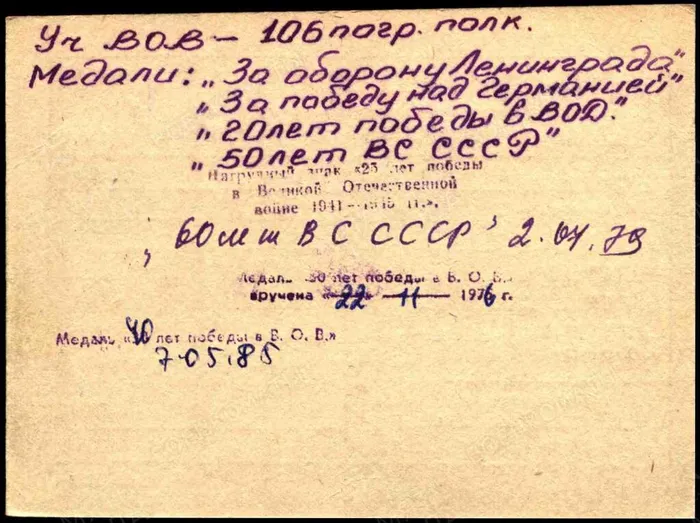 Уч ВОВ – 106 погр. полк.
Медали: „За оборону Ленинграда",
„За победу над Германией"
„20 лет победы в ВОВ."
„50 лет ВС СССР"
Нагрудный знак «25 лет победы
в Великой Отечественной
войне 1941—1945 гг.».
„60 лет ВС СССР" 2.04.79
Медаль «30 лет победы в В. О. В.»
вручена «22» 11 1976 г.
Медаль «40 лет победы в В. О. В.»
7.05.85